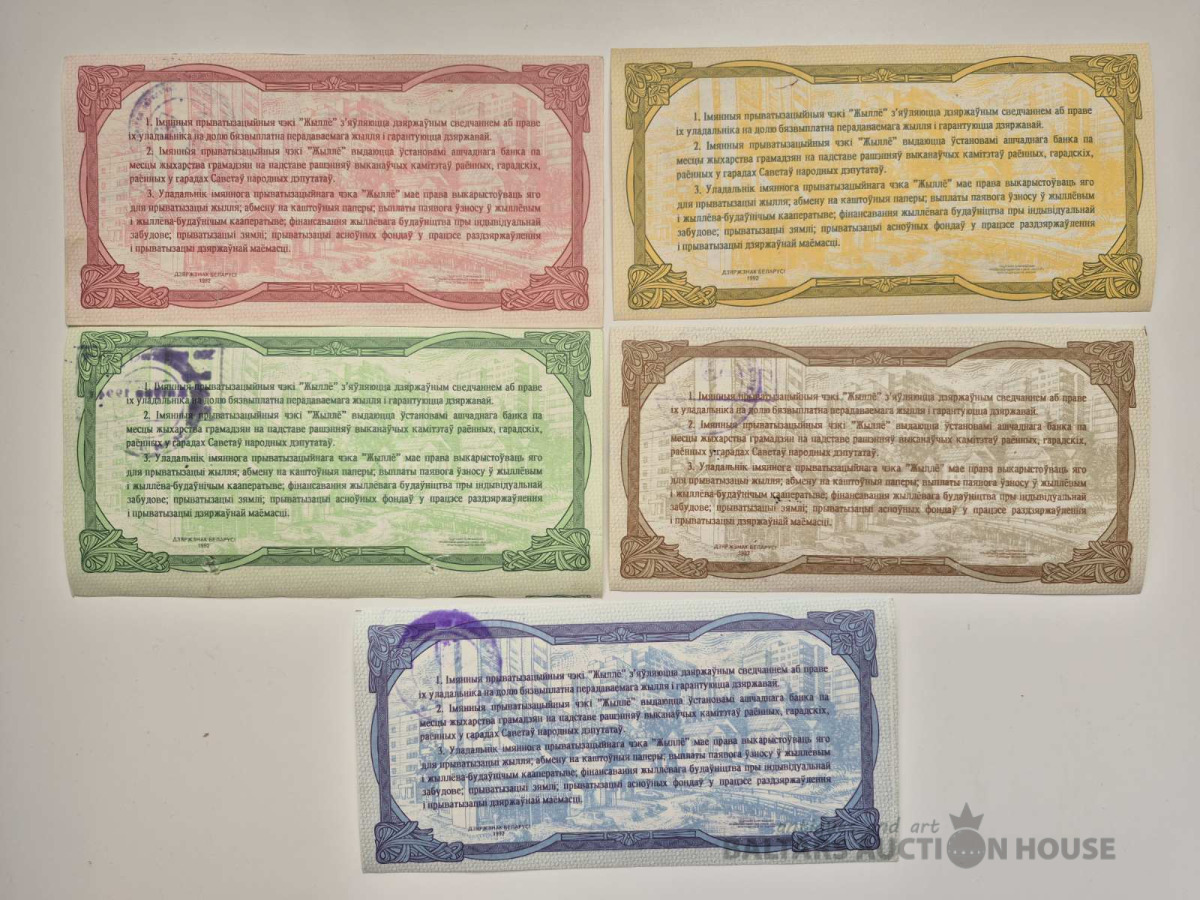 1. Імянныя прыватызацыйныя чэкі "Жыллё" з'яўляюцца дзяржаўным сведчаннем аб праве
іх уладальніка на долю бязвыплатна перадаваемага жылля і гарантуюцца дзяржавай.
2. Імянныя прыватызацыйныя чэкі "Жыллё" выдаюцца ўстановамі ашчаднага банка па
месцы жыхарства грамадзян на падставе рашэнняў выканаўчых камітэтаў раённых, гарадскіх,
раённых у гарадах Саветаў народных дэпутатаў.
3. Уладальнік імяннога прыватызацыйнага чэка "Жыллё" мае права выкарыстоўваць яго
для прыватызацыі жылля; абмену на каштоўныя паперы; выплаты паявога ўзносу ў жыллёвым
і жыллёва-будаўнічым кааператыве; фінансавання жыллёвага будаўніцтва пры індывідуальнай
забудове; прыватызацыі зямлі; прыватызацыі асноўных фондаў у працэсе раздзяржаўлення
і прыватызацыі дзяржаўнай маёмасці.
ДЗЯРЖЗНАК БЕЛАРУСІ
1992
1. Імянныя прыватызацыйныя чэкі "Жыллё" з'яўляюцца дзяржаўным сведчаннем аб праве
іх уладальніка на долю бязвыплатна перадаваемага жылля і гарантуюцца дзяржавай.
2. Імянныя прыватызацыйныя чэкі "Жыллё" выдаюцца ўстановамі ашчаднага банка па
месцы жыхарства грамадзян на падставе рашэнняў выканаўчых камітэтаў раённых, гарадскіх,
раённых у гарадах Саветаў народных дэпутатаў.
3. Уладальнік імяннога прыватызацыйнага чэка "Жыллё" мае права выкарыстоўваць яго
для прыватызацыі жылля; абмену на каштоўныя паперы; выплаты паявога ўзносу ў жыллёвым
і жыллёва-будаўнічым кааператыве; фінансавання жыллёвага будаўніцтва пры індывідуальнай
забудове; прыватызацыі зямлі; прыватызацыі асноўных фондаў у працэсе раздзяржаўлення
і прыватызацыі дзяржаўнай маёмасці.
ДЗЯРЖЗНАК БЕЛАРУСІ
1992
1. Імянныя прыватызацыйныя чэкі "Жыллё" з'яўляюцца дзяржаўным сведчаннем аб праве
іх уладальніка на долю бязвыплатна перадаваемага жылля і гарантуюцца дзяржавай.
2. Імянныя прыватызацыйныя чэкі "Жыллё" выдаюцца ўстановамі ашчаднага банка па
месцы жыхарства грамадзян на падставе рашэнняў выканаўчых камітэтаў раённых, гарадскіх,
раённых у гарадах Саветаў народных дэпутатаў.
3. Уладальнік імяннога прыватызацыйнага чэка "Жыллё" мае права выкарыстоўваць яго
для прыватызацыі жылля; абмену на каштоўныя паперы; выплаты паявога ўзносу ў жыллёвым
і жыллёва-будаўнічым кааператыве; фінансавання жыллёвага будаўніцтва пры індывідуальнай
забудове; прыватызацыі зямлі; прыватызацыі асноўных фондаў у працэсе раздзяржаўлення
і прыватызацыі дзяржаўнай маёмасці.
ДЗЯРЖЗНАК БЕЛАРУСІ
1992
1. Імянныя прыватызацыйныя чэкі "Жыллё" з'яўляюцца дзяржаўным сведчаннем аб праве
іх уладальніка на долю бязвыплатна перадаваемага жылля і гарантуюцца дзяржавай.
2. Імянныя прыватызацыйныя чэкі "Жыллё" выдаюцца ўстановамі ашчаднага банка па
месцы жыхарства грамадзян на падставе рашэнняў выканаўчых камітэтаў раённых, гарадскіх,
раённых у гарадах Саветаў народных дэпутатаў.
3. Уладальнік імяннога прыватызацыйнага чэка "Жыллё" мае права выкарыстоўваць яго
для прыватызацыі жылля; абмену на каштоўныя паперы; выплаты паявога ўзносу ў жыллёвым
і жыллёва-будаўнічым кааператыве; фінансавання жыллёвага будаўніцтва пры індывідуальнай
забудове; прыватызацыі зямлі; прыватызацыі асноўных фондаў у працэсе раздзяржаўлення
і прыватызацыі дзяржаўнай маёмасці.
ДЗЯРЖЗНАК БЕЛАРУСІ
1992
1. Імянныя прыватызацыйныя чэкі "Жыллё" з'яўляюцца дзяржаўным сведчаннем аб праве
іх уладальніка на долю бязвыплатна перадаваемага жылля і гарантуюцца дзяржавай.
2. Імянныя прыватызацыйныя чэкі "Жыллё" выдаюцца ўстановамі ашчаднага банка па
месцы жыхарства грамадзян на падставе рашэнняў выканаўчых камітэтаў раённых, гарадскіх,
раённых у гарадах Саветаў народных дэпутатаў.
3. Уладальнік імяннога прыватызацыйнага чэка "Жыллё" мае права выкарыстоўваць яго
для прыватызацыі жылля; абмену на каштоўныя паперы; выплаты паявога ўзносу ў жыллёвым
і жыллёва-будаўнічым кааператыве; фінансавання жыллёвага будаўніцтва пры індывідуальнай
забудове; прыватызацыі зямлі; прыватызацыі асноўных фондаў у працэсе раздзяржаўлення
і прыватызацыі дзяржаўнай маёмасці.
ДЗЯРЖЗНАК БЕЛАРУСІ
1992
and art
BALTARS AUCTION HOUSE